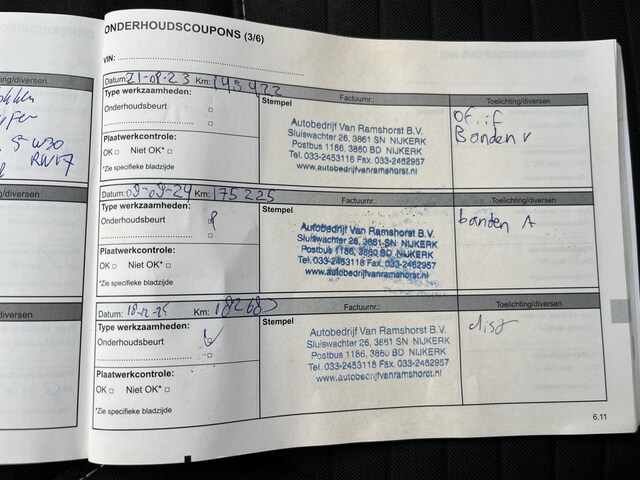 ONDERHOUDSCOUPONS (3/6)
VIN:
Datum: 21-08-23 Km:
Type werkzaamheden:
Onderhoudsbeurt
Plaatwerkcontrole:
OK Niet OK*
*Zie specifieke bladzijde
Factuurnr.:
Stempel
Autobedrijf Van Ramshorst B.V.
Sluiswachter 26, 3861 SN NIJKERK
Postbus 1186, 3860 BD NIJKERK
Tel. 033-2453118 Fax. 033-2462957
www.autobedrijfvanramshorst.nl
Toelichting/diversen
Banden v
Datum: 09-09-24 Km: 175225
Type werkzaamheden:
Onderhoudsbeurt
Plaatwerkcontrole:
OK Niet OK*
*Zie specifieke bladzijde
Factuurnr.:
Stempel
Autobedrijf Van Ramshorst B.V.
Sluiswachter 26, 3861 SN NIJKERK
Postbus 1186, 3860 BD NIJKERK
Tel. 033-2453118 Fax. 033-2462957
www.autobedrijfvanramshorst.nl
Toelichting/diversen
banden A
Datum: 18-12-25 Km:
Type werkzaamheden:
Onderhoudsbeurt
Plaatwerkcontrole:
OK Niet OK*
*Zie specifieke bladzijde
Factuurnr.:
Stempel
Autobedrijf Van Ramshorst B.V.
Sluiswachter 26, 3861 SN NIJKERK
Postbus 1186, 3860 BD NIJKERK
Tel. 033-2453118 Fax. 033-2462957
www.autobedrijfvanramshorst.nl
Toelichting/diversen
6.11